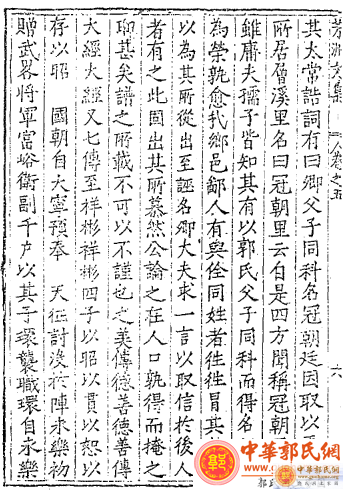 芳洲文集 卷之五 六
其太常誥詞有曰卿父子同科名冠朝廷因取以
所居層溪里名曰冠朝里云自是四方聞稱冠朝
雖庸夫孺子皆知其有以郭氏父子同科而得名
為榮孰愈我鄉邑鄰人有與同姓者徃徃冒其
以為其所從出至誣名卿大夫求一言以取信於後人
者有之此固出其所慕然公論之在人口孰得而掩之
聊甚矣譜之所載不可以不謹也之美傳德善德善傳
大經大經又七傳至祥彬祥彬四子以昭以貫以恕以
存以昭 國朝自大寧預奉 天征討沒於陣永樂初
贈武畧將軍富峪衛副千戶以其子環襲職環自永樂
中華郭氏網
中華郭氏網